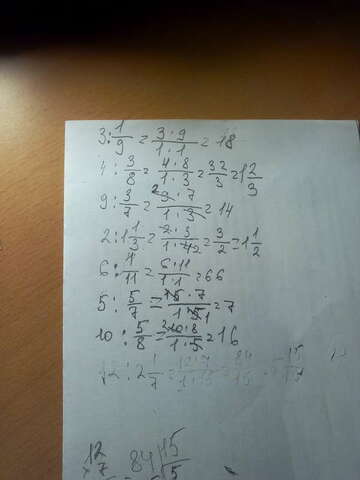 3 : 1/9 = 3·9/1·1 = 18
4 : 3/8 = 4·8/1·3 = 32/3 = 1 2/3
9 : 3/7 = 9·7/1·3 = 14
2 : 1 1/3 = 2·3/1·4 2 = 3/2 = 1 1/2
6 : 1/11 = 6·11/1·1 = 66
5 : 5/7 = 5·7/1·5 1 = 7
10 : 5/8 = 2 10·8/1·5 = 16
12 : 2 1/7 = 12·7/1·15 = 84/15
12 84 15
×7